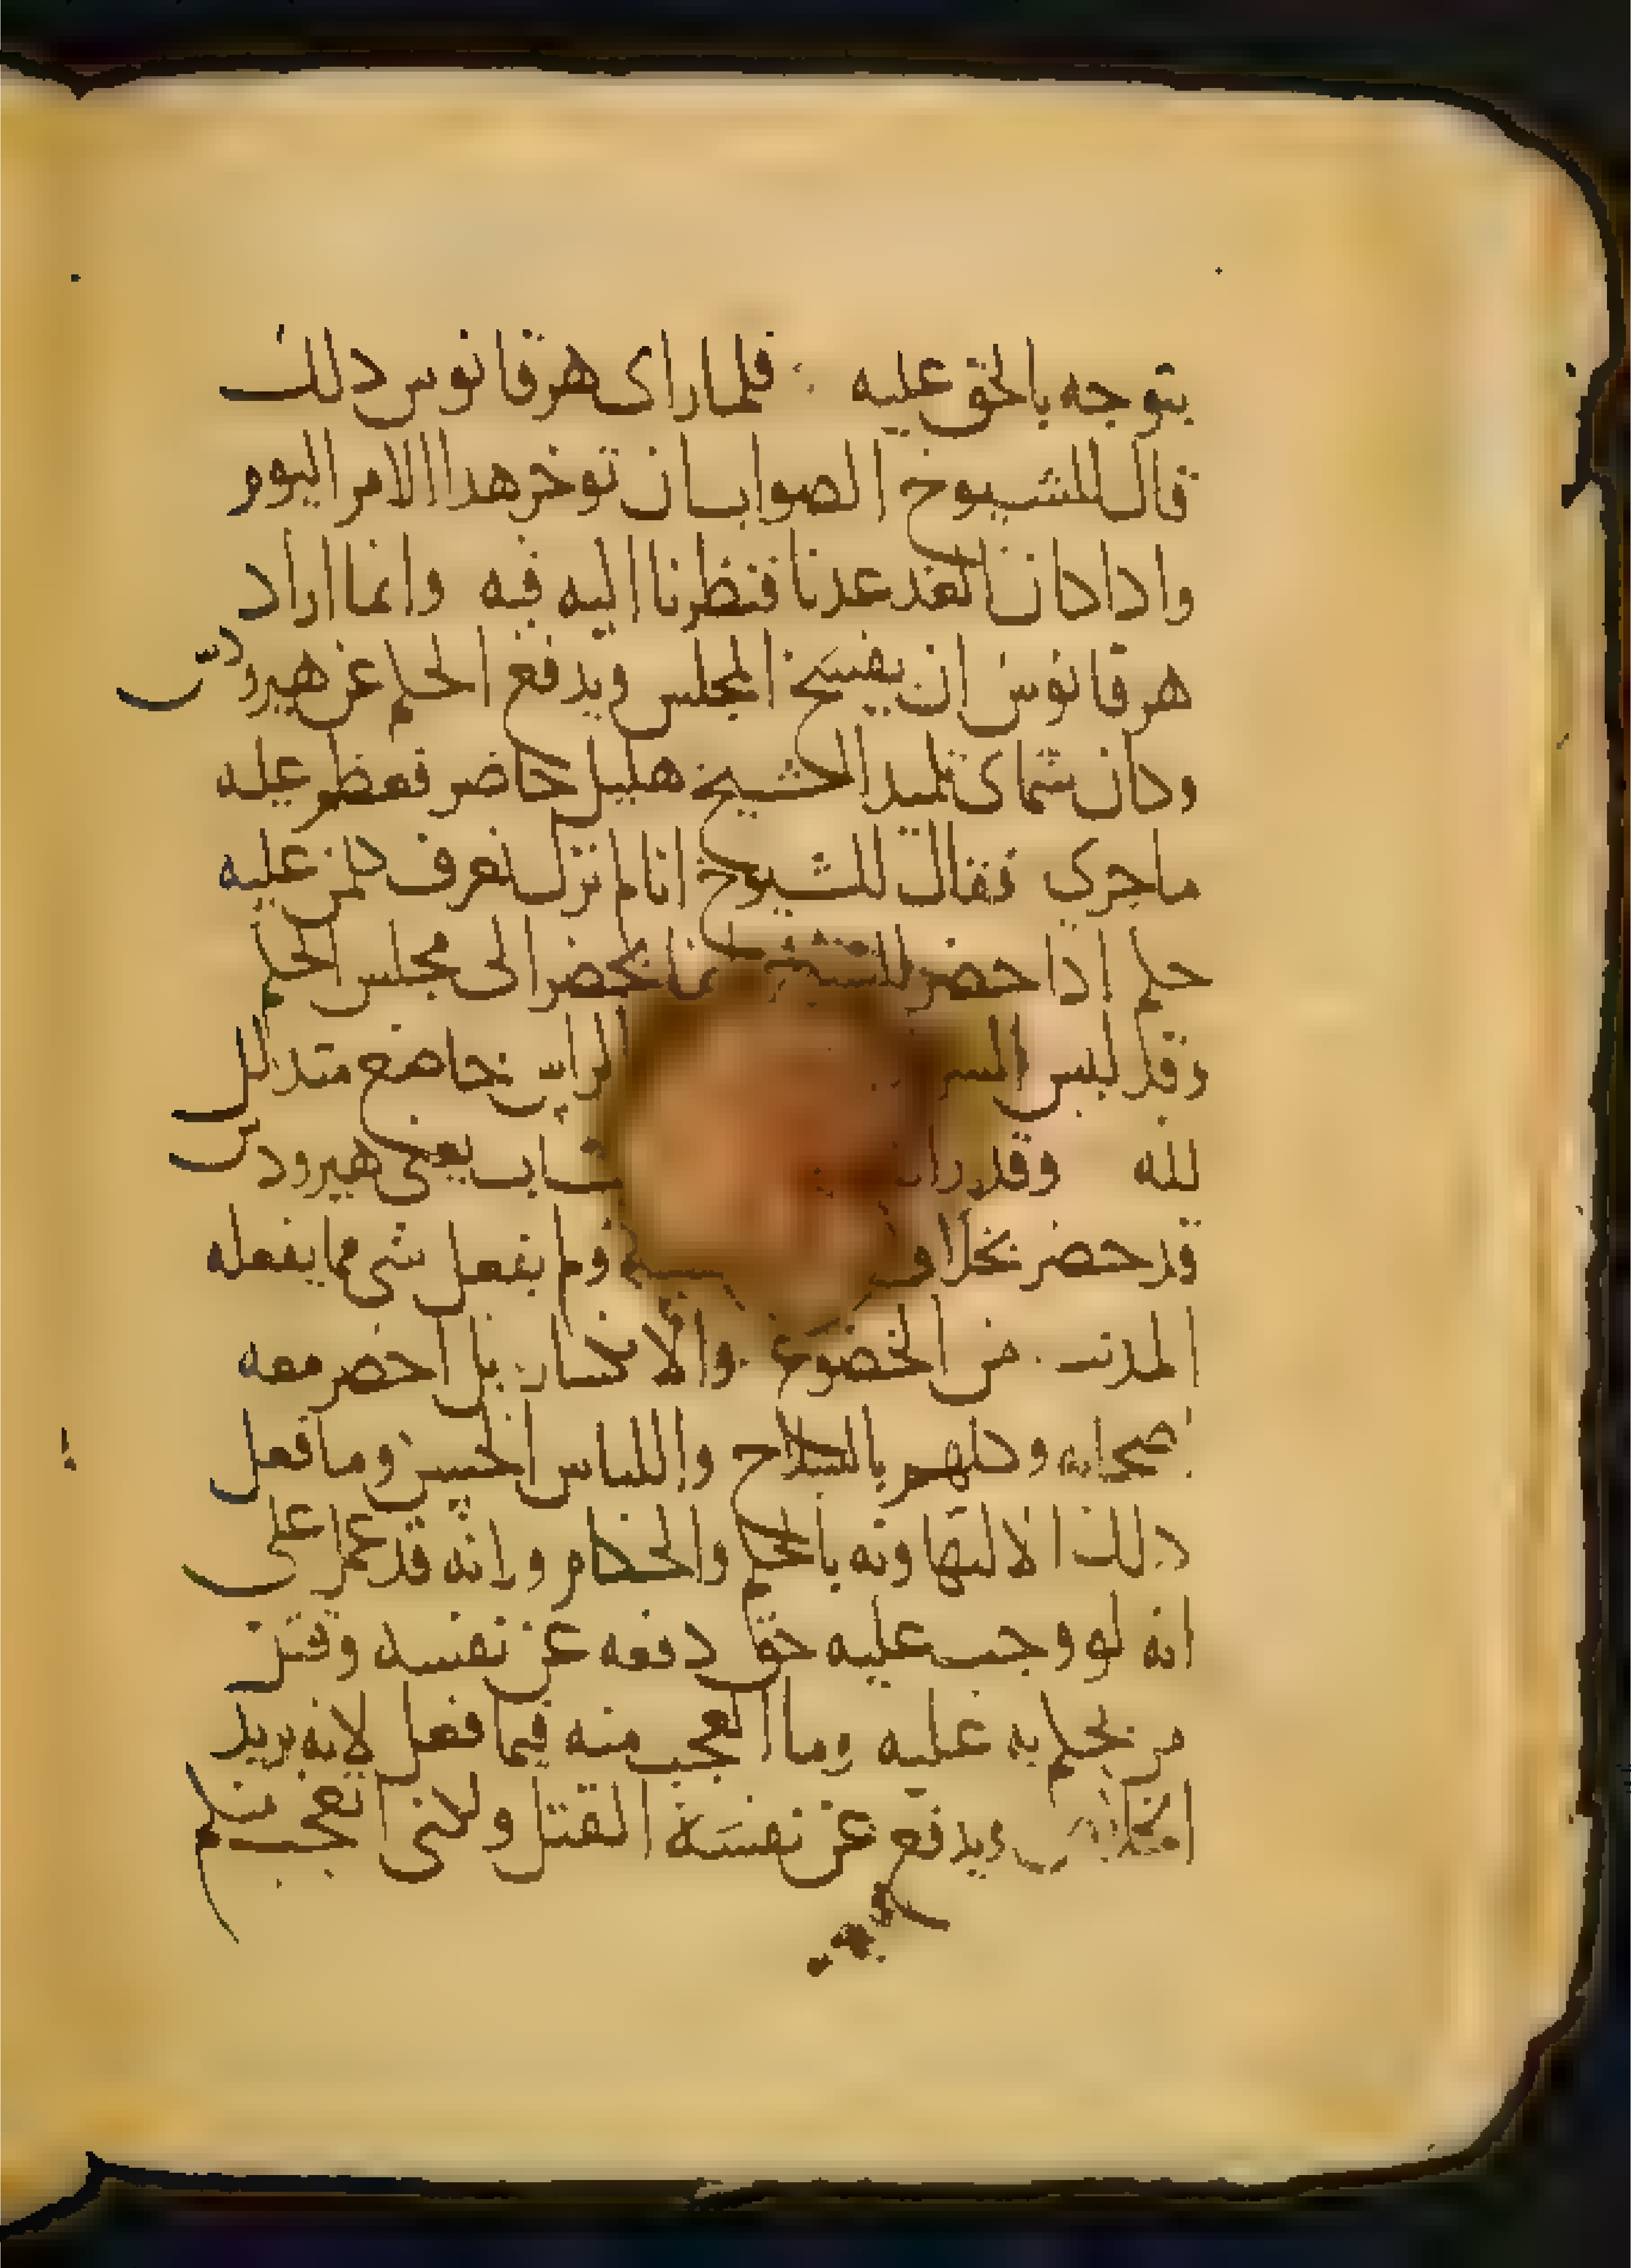 يتوجه بالحق عليه فلما راى هرقانوس دلك
قال للشيوخ الصواب ان توخر هدا الامر اليوم
وادا كان الغد عدنا فنظرنا اليه فيه وانما اراد
هرقانوس ان يفسخ المجلس ويدفع الحكم عن هيرودس
وكان شماى تلميد الشيخ هليل حاضر فعظم عليه
ما جرى فقال للشيوخ انا لم نزل نعرف كلمن عليه
حكم ادا حضر للشيوخ انما يحضر الى مجلس الحكم
وقد لبس الراس خاضع متدلل
لله وقد شاب يعنى هيرودس
قد حضر بخلاف ولم يفعل شى مما يفعله
المدنب من الخضوع والانكسار بل احضر معه
اصحابه وكلهم بالسلاح واللباس الحسن وما فعل
دلك الا لتهاونه بالحكم والحكام وانه قد عمل على
انه لو وجب عليه حق دفعه عن نفسه وقتل
من يحكم به عليه وما العجب منه فيما فعل لانه يريد
ويدفع عن نفسه القتل ولكنى اتعجب منكم